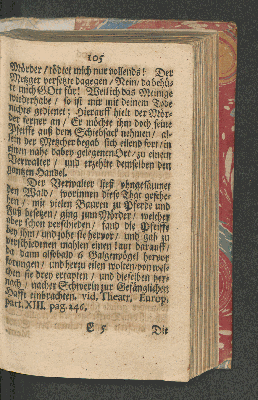 105
Mörder / tödtet mich nur vollends! Der
Metzger versetzte dagegen / Nein / da behü-
te mich Gott für! Weil ich das Meinige
wiederhabe / so ist mir mit deinem Tode
nichts gedienet; Hierauff hielt der Mör-
der ferner an / Er möchte ihm doch seine
Pfeiffe auß dem Schiebsack nehmen / al-
lein der Metzger begab sich eilend fort / in
einen nahe dabey gelegenen Ort / zu einem
Verwalter / und erzehlte demselben den
gantzen Handel.
Der Verwalter ließ ohngesäumet
den Wald / worinnen diese That gesche-
hen / mit vielen Bauren zu Pferde und
Fuß besetzen / ging zum Mörder / welcher
aber schon verschieden / fand die Pfeiffe
bey ihm / und zohe sie hervor / und gab zu
verschiedenen mahlen einen laut darauff /
da dann alsobald 6 Galgenvögel hervor
sprungen / und herzu eilen wolten / von wel-
chen sie drey ertapten / und dieselben her-
nach / nacher Schwerin zur Gefänglichen
Hafft einbrachten. vid. Theatr. Europ.
part. XIII. pag. 246.
E 5 Die